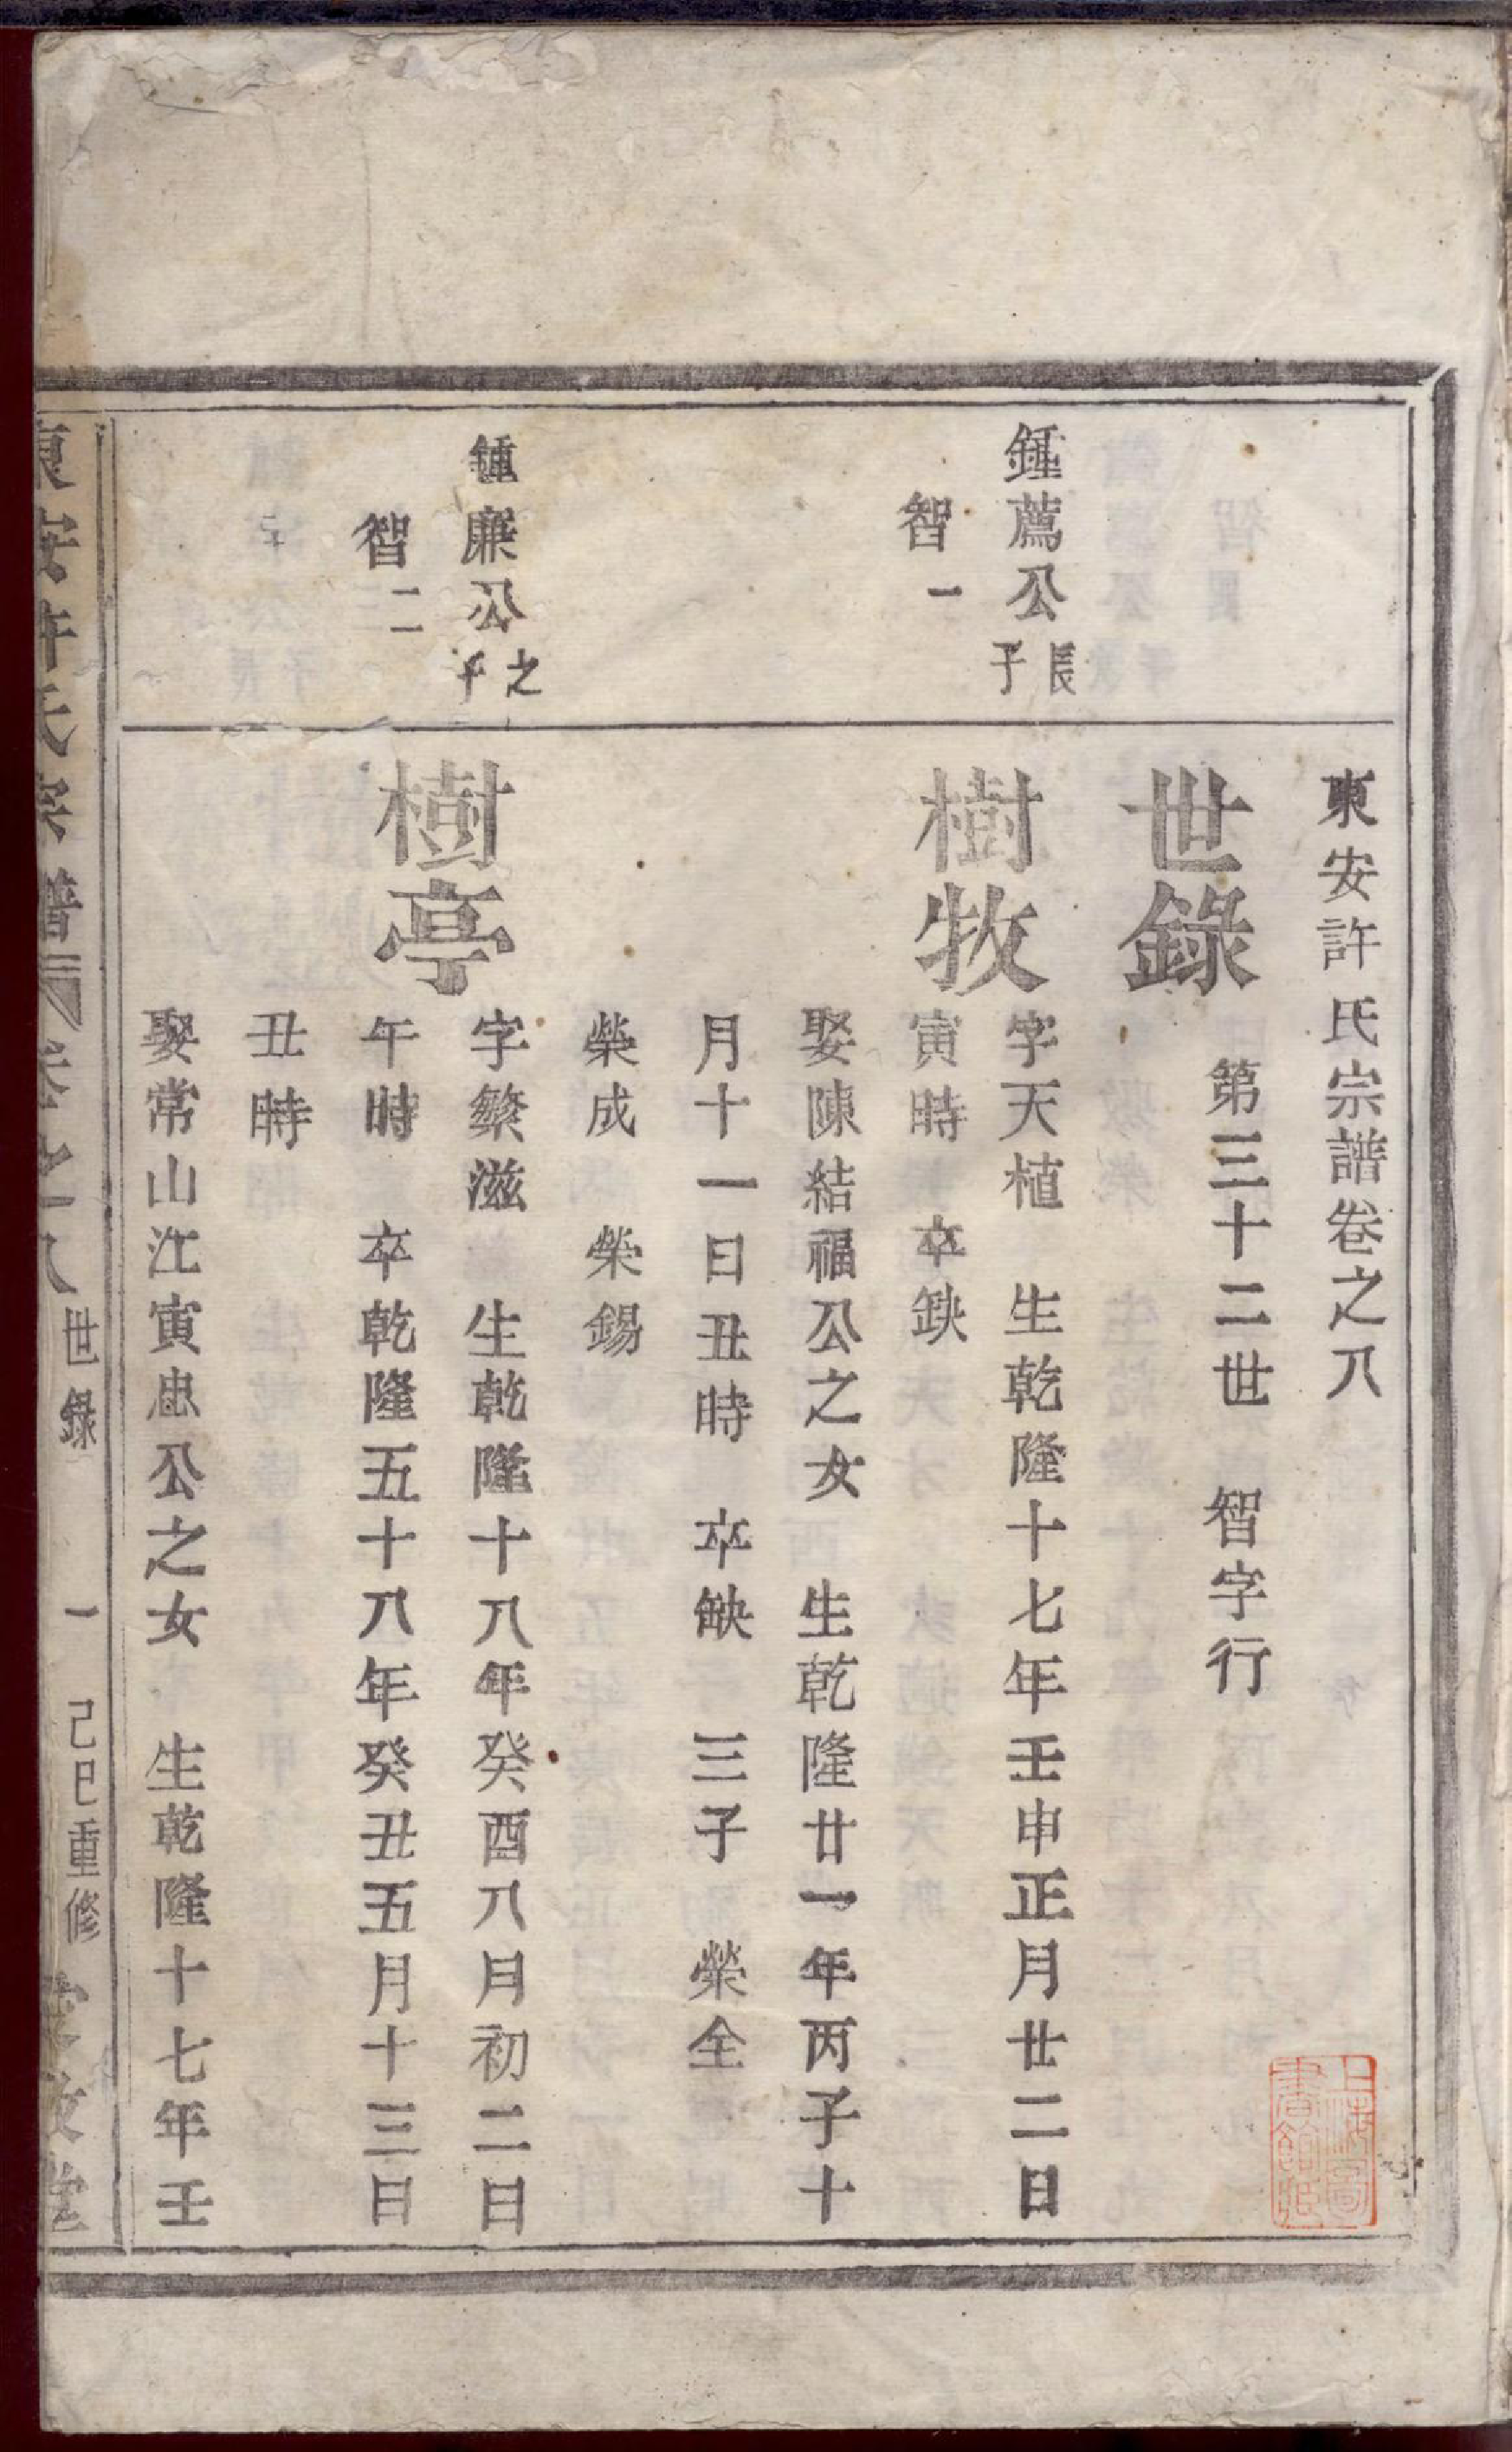 東安許氏宗譜卷之八
世錄
第三十二世　智字行
鍾薦公長子
智一
樹牧
字天植　生乾隆十七年壬申正月廿二日
寅時　卒缺
娶陳結福公之女　生乾隆廿一年丙子十
月十一日丑時　卒缺　三子　榮全
榮成　榮錫
鍾廉公之子
智二
樹亭
字繁滋　生乾隆十八年癸酉八月初二日
午時　卒乾隆五十八年癸丑五月十三日
丑時
娶常山江寅忠公之女　生乾隆十七年壬
東安許氏宗譜　卷之八　世錄　一　己巳重修
上海圖書館藏